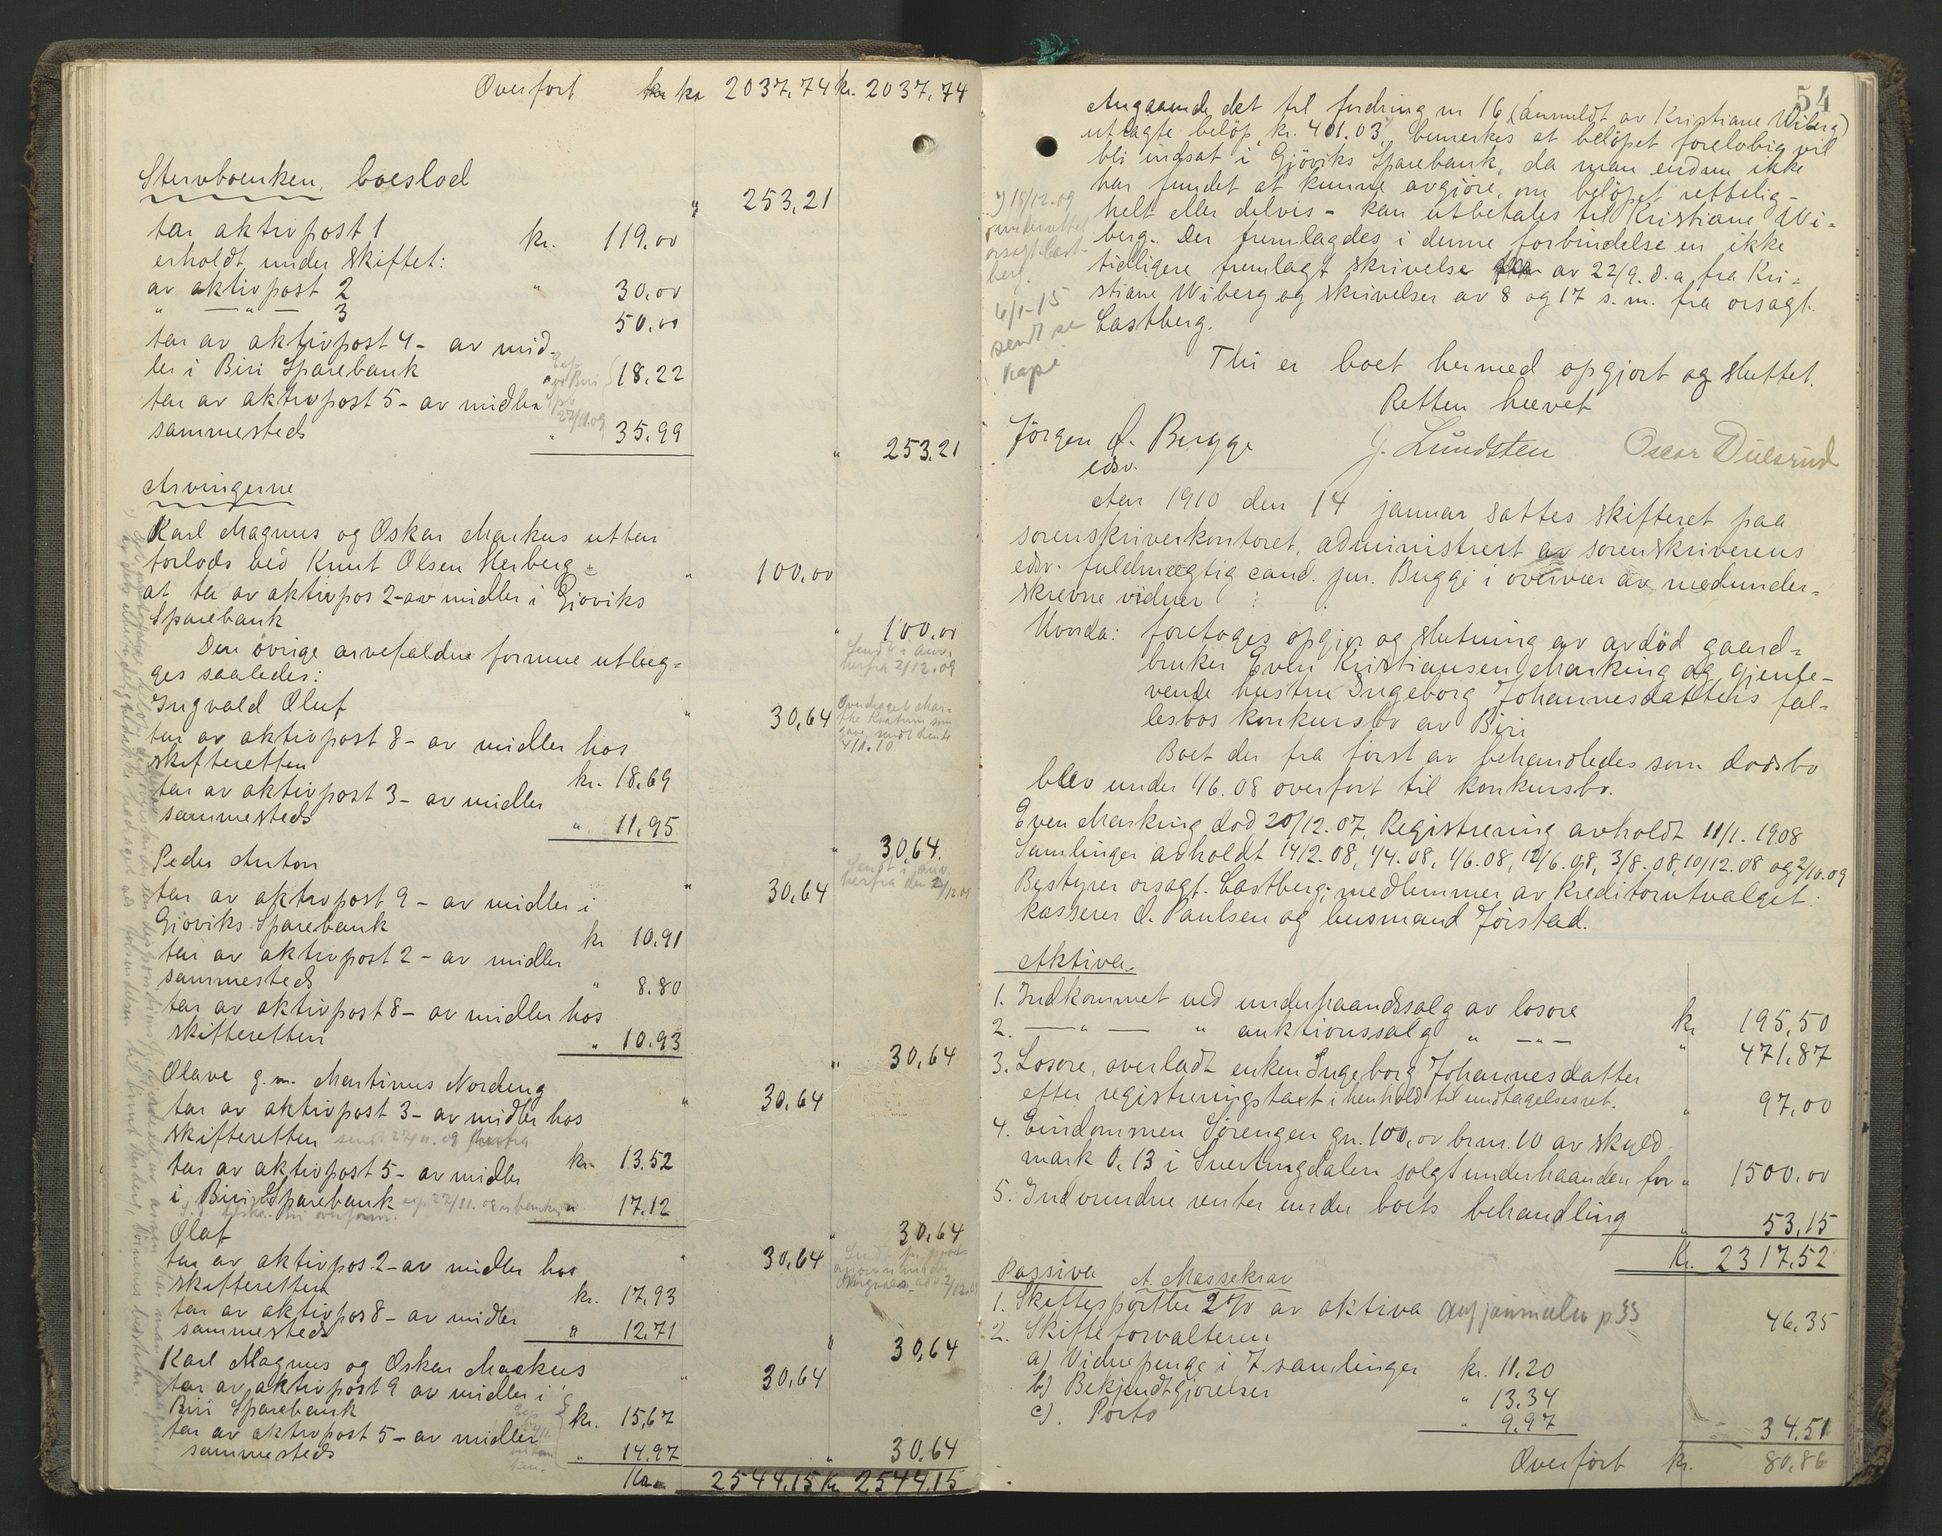 Overført kr 2037,74 kr. 2037,74
Stervboenken, boeslod " 253,21
tar aktivpost 1 kr. 119,00
erholdt under skiftet:
av aktivpost 2 " 30,00
" — " — 3 50,00
tar av aktivpost 4 - av mid-
ler i Biri Sparebank 18,22
tar av aktivpost 5 - av midler
sammesteds " 35,99
" 253,21
Arvingerne
Karl Magnus og Oskar Markus uttar
forlods ved Knut Olsen Herberg " 100,00
at ta av aktivpos 2 - av midler i Gjøviks
Sparebank " 100,00
Sendt i anv.
herfra 2/12.09
Den øvrige arvefaldne formue utlæg-
ges saaledes:
Ingvald Oluf " 30,64
tar av aktivpost 8 - av midler hos
skifteretten kr. 18,69
tar av aktivpost 3 - av midler
sammesteds " 11,95
" 30,64.
Peder Anton " 30,64
tar av aktivpost 9 - av midler i
Gjøviks Sparebank kr 10,91
tar av aktivpost 2 - av midler
sammesteds " 8,80
tar av aktivpost 8 - av midler hos
skifteretten " 10,93
" 30,64
Olave g.m. Martinus Nordeng " 30,64
tar av aktivpost 3 - av midler hos
skifteretten sendt 27/11.09 herfra kr. 13,52
tar av aktivpost 5 - av midler
i Biri Sparebank " 17,12
" 30,64
Olaf " 30,64
tar av aktivpos. 2 - av midler hos
skifteretten kr. 17,93
tar av aktivpos 8 - av midler
sammesteds " 12,71
" 30,64
Karl Magnus og Oskar Markus " 30,64
tar av aktivpost 9 av midler i
Biri Sparebank kr. 15,67
tar av aktivpost 5 - av midler
sammesteds " 14,97
" 30,64
Kr. 2544,15 Kr. 2544,15
54
Angaaende det til fordring nr 16 (anmeldt av Kristiane Wiberg)
utlagte beløp, kr. 401.03, bemerkes at beløpet foreløbig vil
bli indsat i Gjøviks Sparebank, da man endnu ikke
har fundet at kunne avgjøre, om beløpet rettelig -
helt eller delvis - kan utbetales til Kristiane Wi-
berg. Der fremlagdes i denne forbindelse en ikke
tidligere fremlagt skrivelse av 22/9. d.a. fra Kri-
stiane Wiberg og skrivelser av 8 og 17 s.m. fra orsagt.
Castberg.
6/1-15
Thi er boet hermed opgjort og sluttet.
Retten hævet
Jørgen Ø. Bugge
edsv.
G. Lundsten Oscar Dulsrud
Aar 1910 den 14 januar sattes skifteret paa
sorenskriverkontoret, administrert av sorenskriverens
edsv. fuldmægtig cand. jur. Bugge i overvær av medunder-
skrevne vidner
Hvorda: foretoges opgjør og slutning av avdød gaard-
bruker Even Kristiansen Marking og gjenle-
vende hustru Ingeborg Johannesdatters fæl-
lesbos konkursbo av Biri
Boet der fra først av behandledes som dødsbo
blev under 1/6.08 overført til konkursbo.
Even Marking død 20/12.07. Registrering avholdt 11/1.1908
Samlinger avholdt 14/2.08, 1/4.08, 1/6.08, 12/6.08, 3/8.08, 10/12.08 og 2/10.09
Bestyrer orsagt. Castberg; medlemmer av kreditorutvalget:
kasserer O. Paulsen og husmand Jørstad.
Aktiva.
1. Indkommet ved underhaandssalg av løsøre kr 195,50
2. — " — " auktionssalg " — " — " 471,87
3. Løsøre, overladt enken Ingeborg Johannesdatter
efter registreringstaxt i henhold til undtagelsesret. " 97,00
4. Eiendommen Sørengen gn. 100, av brnr. 10 av skyld
mark 0,13 i Snertingdalen solgt underhaanden for " 1500,00
5. Indvundne renter under boets behandling " 53,15
Kr. 2317,52
Passiva A. Massekrav
1. Skiftesportler 2 % av aktiva 46,35
2. Skifteforvalteren
a) Vidnepenge i 7 samlinger kr. 11,20
b) Bekjendtgjørelser " 13,34
c). Porto " 9,97
34,51
Overført kr. 80,86